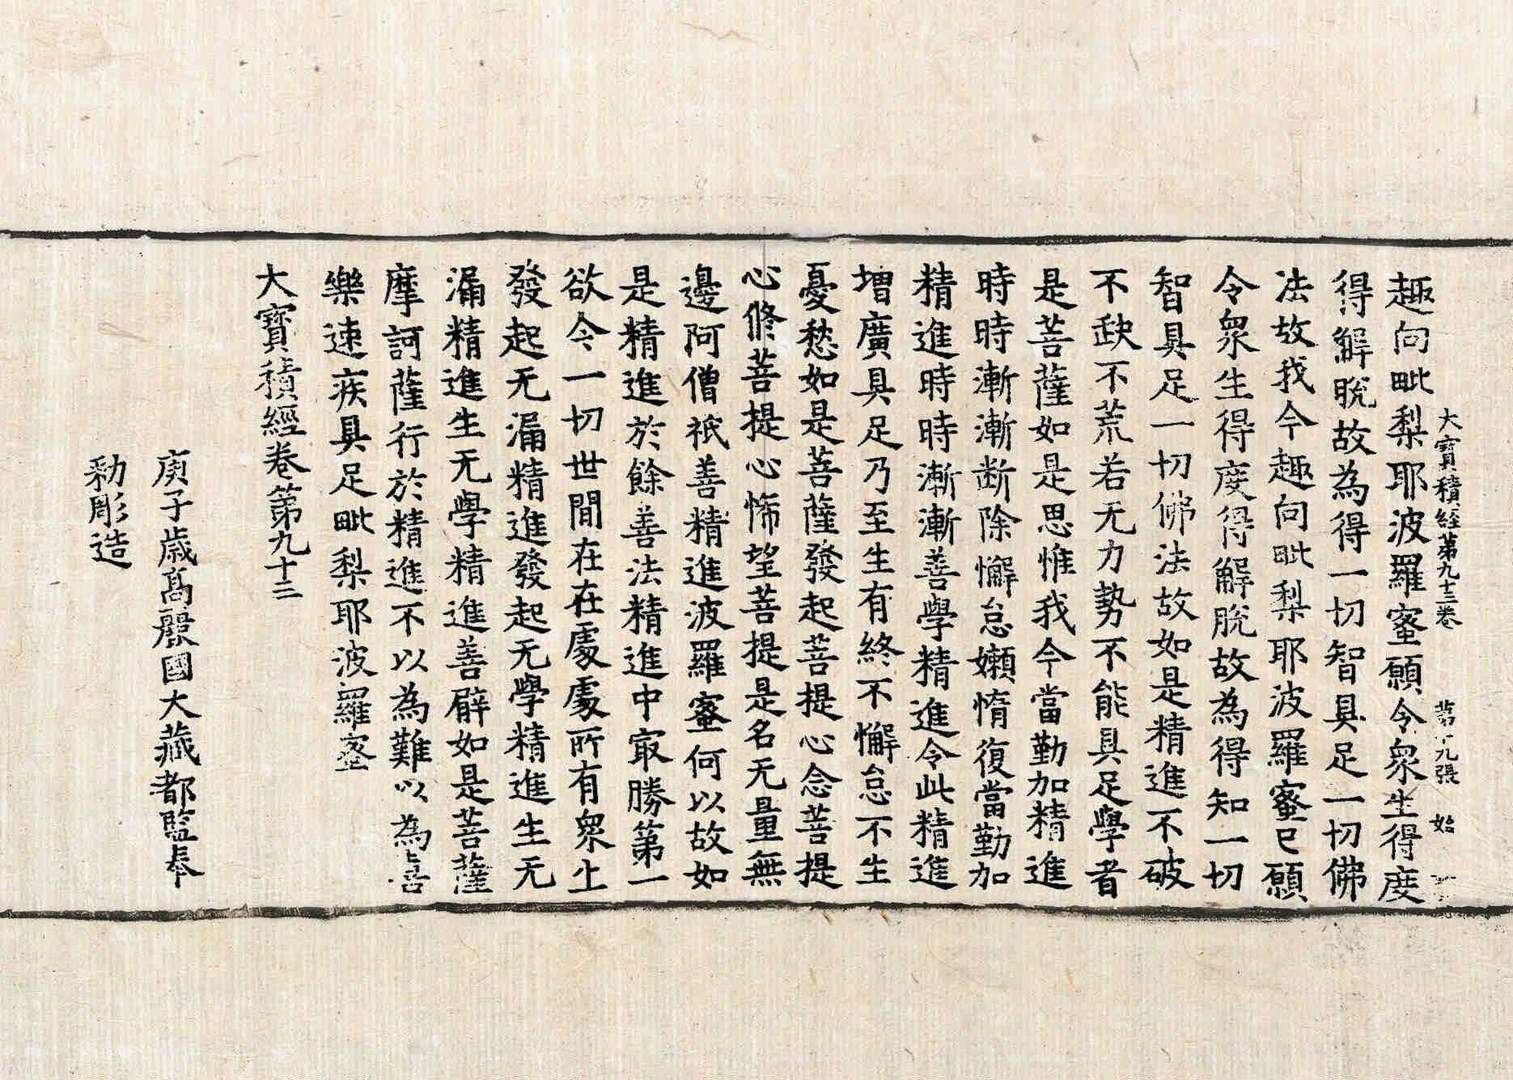 大寶積經第九十三卷 第十九張 始
趣向毗梨耶波羅蜜願令衆生得度
得解脫故為得一切智具足一切佛
法故我今趣向毗梨耶波羅蜜已願
令衆生得度得解脫故為得知一切
智具足一切佛法故如是精進不破
不缺不荒若无力勢不能具足學者
是菩薩如是思惟我今當勤加精進
時時漸漸断除懈怠嬾惰復當勤加
精進時時漸漸善學精進令此精進
增廣具足乃至生有終不懈怠不生
憂愁如是菩薩發起菩提心念菩提
心脩菩提心悕望菩提是名无量無
邊阿僧祇善精進波羅蜜何以故如
是精進於餘善法精進中㝡勝第一
欲令一切世間在在處處所有衆生
發起无漏精進發起无學精進生无
漏精進生无學精進善辟如是菩薩
摩訶薩行於精進不以為難以為喜
樂速疾具足毗梨耶波羅蜜
大寶積經卷第九十三
庚子歲高麗國大藏都監奉
勑彫造